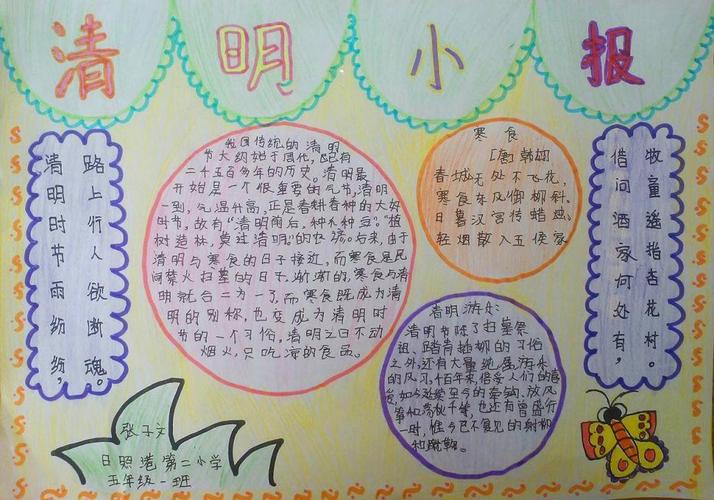 清明小报
清明时节雨纷纷,
路上行人欲断魂。
我国传统的清明
节大约始于周代,已有
二千五百多年的历史。清明最
开始是一个很重要的气节,清明
一到,气温升高,正是春耕春种的大好
时节,故有“清明前后,种瓜种豆”。“植
树造林,莫过清明”的农谚。后来,由于
清明与寒食的日子接近,而寒食是民
间禁火扫墓的日子,渐渐的,寒食与清
明就合二为一了,而寒食既成为清
明的别称,也变成为清明时
节的一个习俗,清明之日不动
烟火,只吃凉的食品。
寒食
[唐]韩翃
春城无处不飞花,
寒食东风御柳斜。
日暮汉宫传蜡烛,
轻烟散入五侯家
借问酒家何处有,
牧童遥指杏花村。
清明游乐:
清明节除了扫墓祭
祖、踏青插柳的习俗
之外,还有大量
的风习,千百年来,倍受人们的喜
爱,如今延续至今的牵钩、放风
筝和荡秋千等,也还有曾盛行
一时,惟今已不复见的射柳
和蹴鞠。
张子文
日照港第二小学
五年级一班